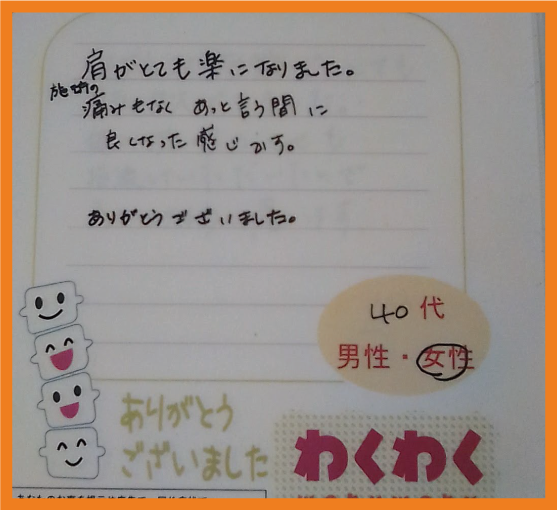 肩がとても楽になりました。
施術の
痛みもなく あっと言う間に
良くなった感じがす。
ありがとうございました。
40代
男性・女性
ありがとう
ございました
わくわく